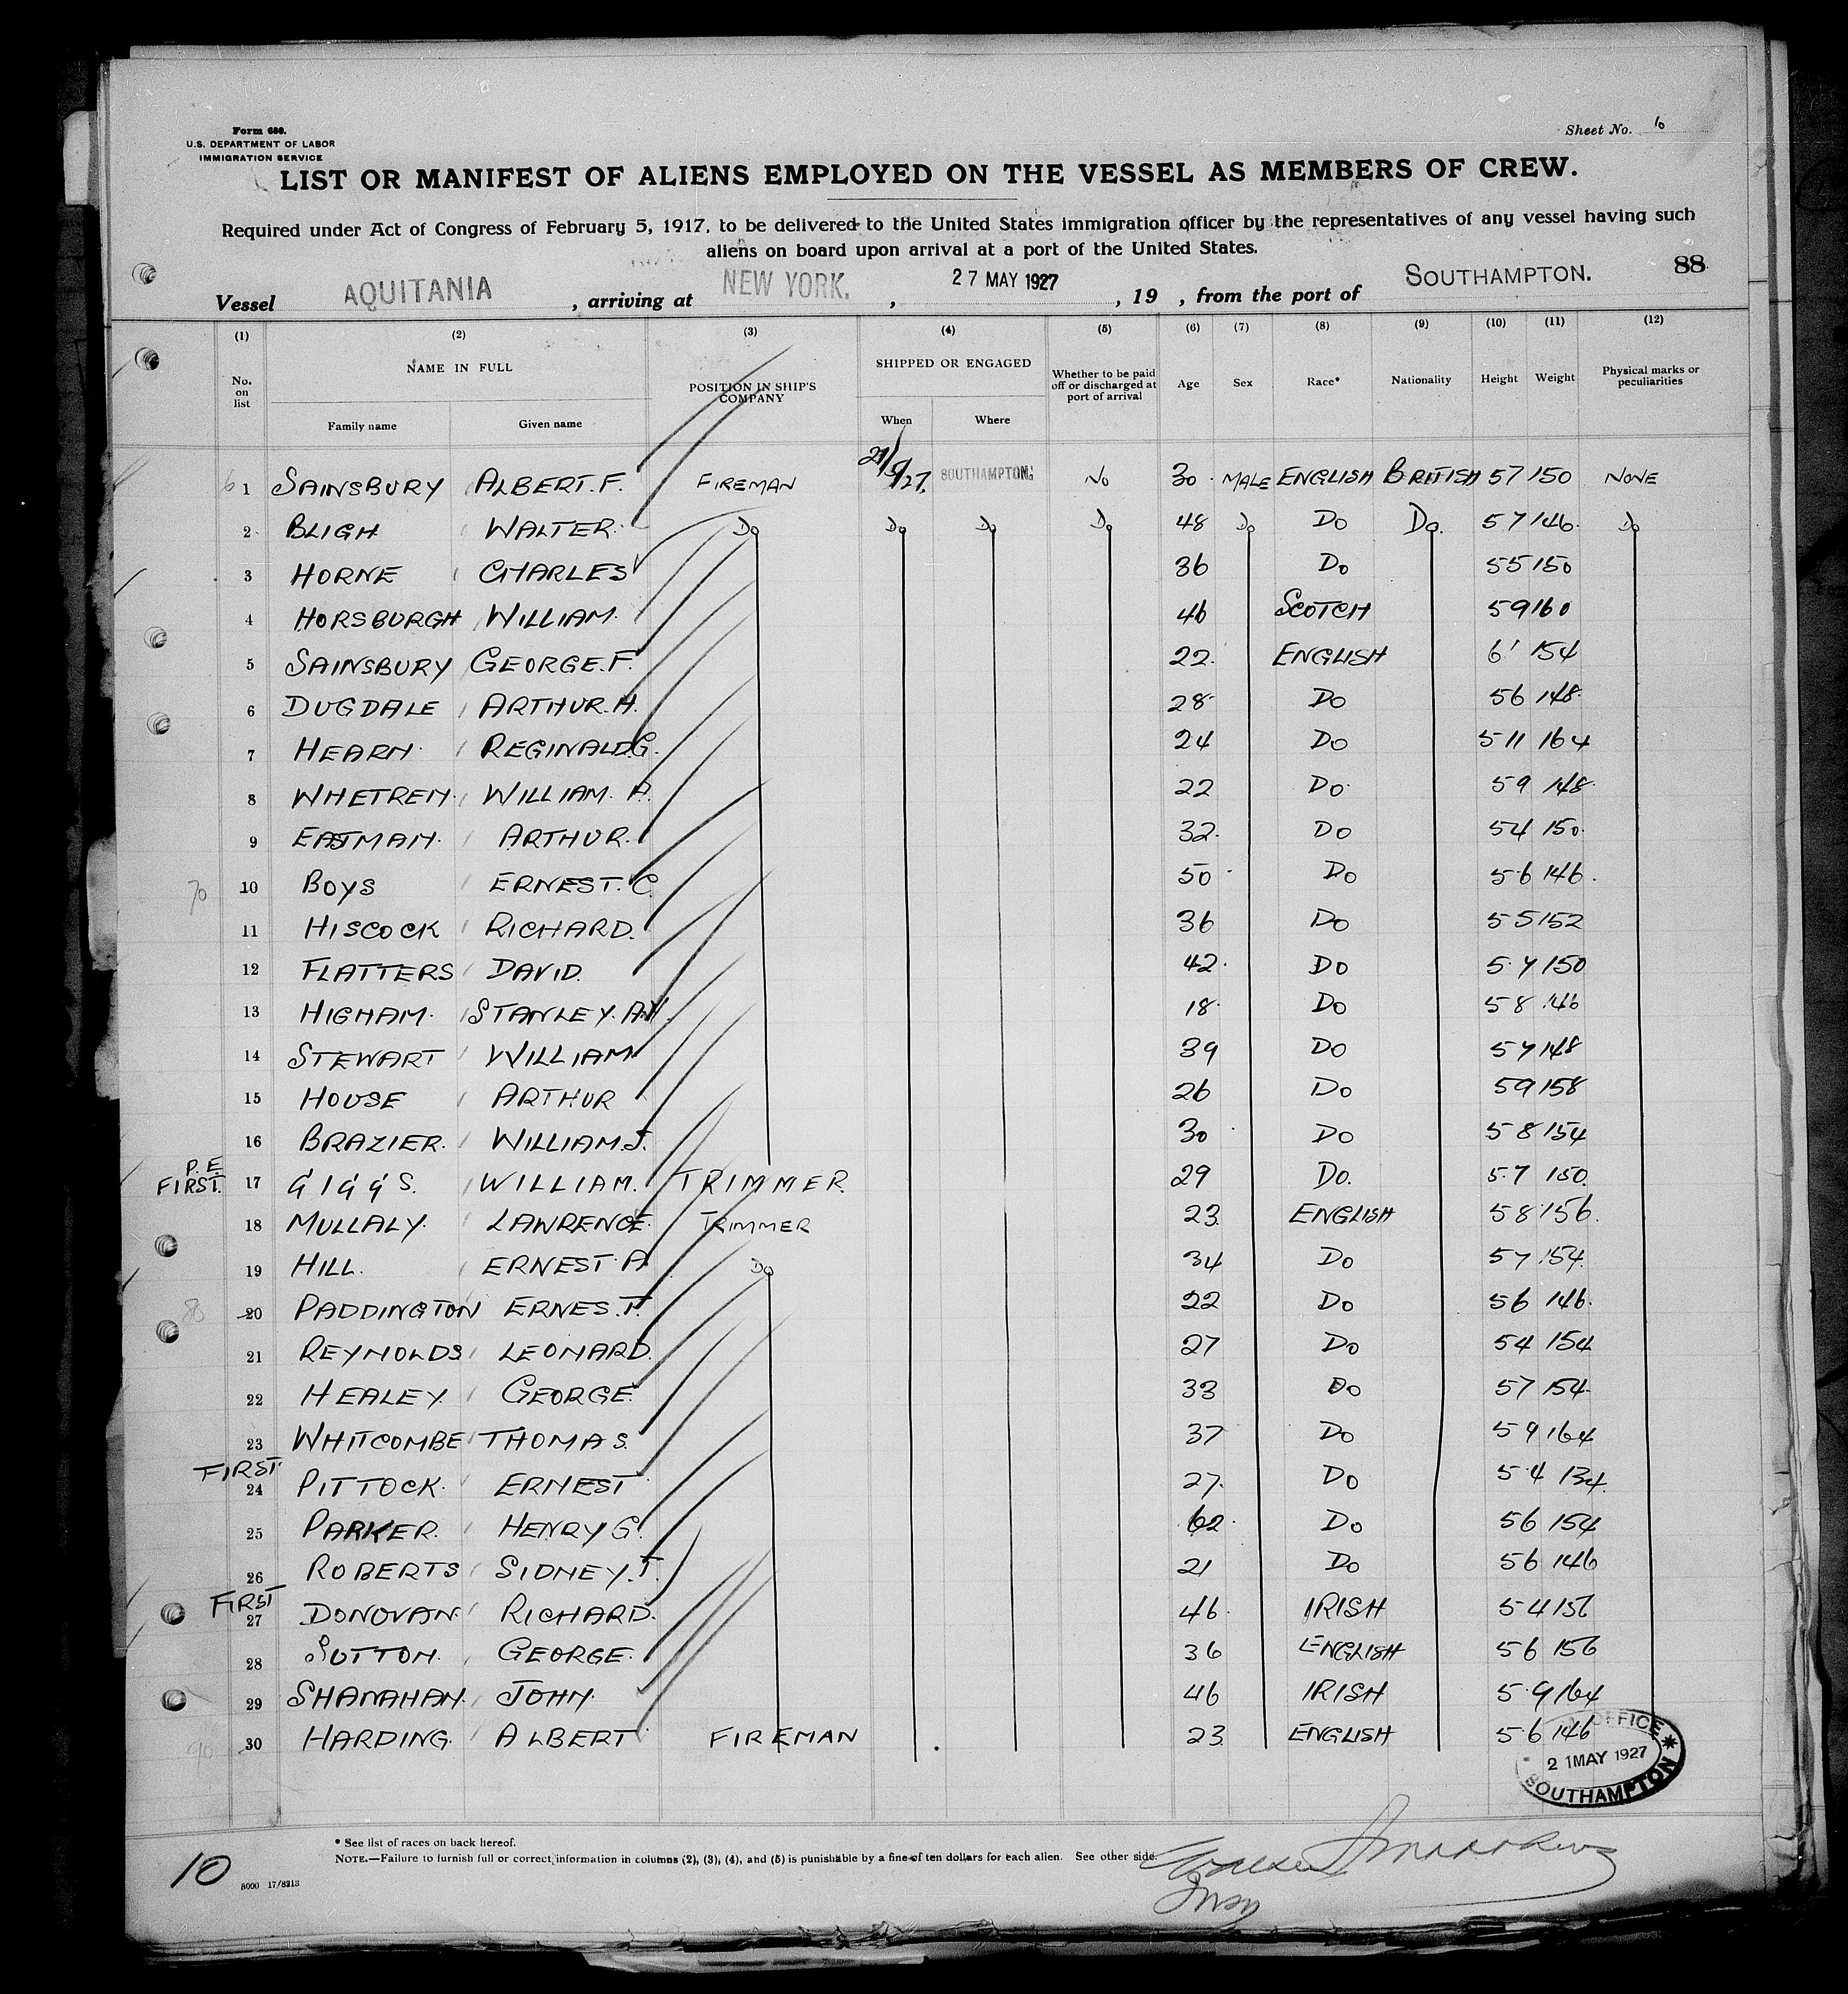 Form 680.
U.S. DEPARTMENT OF LABOR
IMMIGRATION SERVICE
Sheet No. 10
LIST OR MANIFEST OF ALIENS EMPLOYED ON THE VESSEL AS MEMBERS OF CREW.
Required under Act of Congress of February 5, 1917, to be delivered to the United States immigration officer by the representatives of any vessel having such
aliens on board upon arrival at a port of the United States.
88
Vessel AQUITANIA , arriving at NEW YORK. , 27 MAY 1927 , 19 , from the port of SOUTHAMPTON.
(1) (2) (3) (4) (5) (6) (7) (8) (9) (10) (11) (12)
No. on list NAME IN FULL POSITION IN SHIP'S COMPANY SHIPPED OR ENGAGED Whether to be paid off or discharged at port of arrival Age Sex Race* Nationality Height Weight Physical marks or peculiarities
Family name Given name When Where
1 SAINSBURY ALBERT.F. FIREMAN 21/5/27. SOUTHAMPTON. NO 30 MALE ENGLISH BRITISH 57 150 NONE
2 BLIGH WALTER. DO DO DO DO 48 DO DO DO. 57 146 DO
3 HORNE CHARLES 36 DO 55 150
4 HORSBURGH WILLIAM. 46 SCOTCH 59 160
5 SAINSBURY GEORGE.F. 22. ENGLISH 6' 154
6 DUGDALE ARTHUR.H. 28 DO 56 148
7 HEARN REGINALD.G. 24 DO 511 164
8 WHETREN WILLIAM. A. 22 DO 59 148
9 EASTMAN. ARTHUR. 32. DO 54 150
70 10 BOYS ERNEST. C. 50 DO 56 146
11 HISCOCK RICHARD. 36 DO 55 152
12 FLATTERS DAVID. 42. DO 57 150
13 HIGHAM. STANLEY. 18 DO 58 146
14 STEWART WILLIAM 39 DO 57 148
15 HOUSE ARTHUR 26 DO 59 158
16 BRAZIER. WILLIAM.J. 30 DO 58 154
P.E.
FIRST. 17 GIGGS. WILLIAM. TRIMMER. 29 DO. 5.7 150.
18 MULLALY. LAWRENCE. TRIMMER 23. ENGLISH 58 156.
19 HILL. ERNEST A DO 34 DO 57 154.
80 20 PADDINGTON ERNES.T. 22 DO 56 146.
21 REYNOLDS LEONARD. 27 DO 54 154
22 HEALEY. GEORGE. 33 DO 57 154
23 WHITCOMBE THOMAS. 37 DO 59 164
FIRST.
24 PITTOCK. ERNEST 27. DO 5.4 134.
25 PARKER. HENRY G. 62 DO 56 154
26 ROBERTS SIDNEY.J. 21 DO 56 146
FIRST
27 DONOVAN. RICHARD. 46 IRISH 54 156
28 SUTTON. GEORGE. 36 ENGLISH 56 156
29 SHANAHAN. JOHN. 46 IRISH 5.9 164
90 30 HARDING. ALBERT FIREMAN 23. ENGLISH 5.6 146
OFFICE
21 MAY 1927
SOUTHAMPTON
* See list of races on back hereof.
NOTE.—Failure to furnish full or correct information in columns (2), (3), (4), and (5) is punishable by a fine of ten dollars for each alien. See other side.
10
8000 17/8213